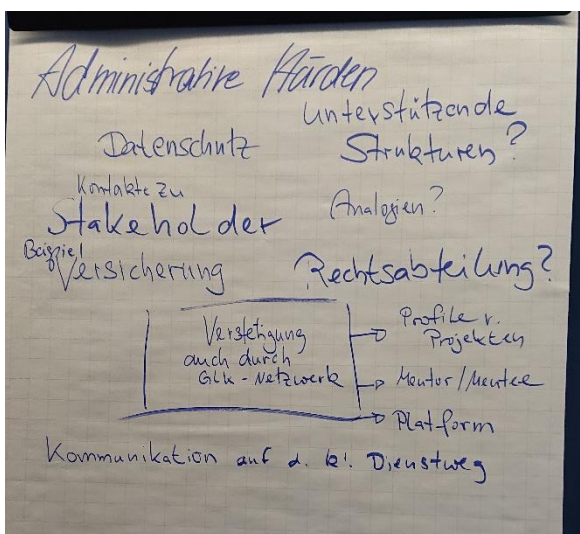 Administrative Hürden
unterstützende
Strukturen?
Datenschutz
Kontakte zu
Stakeholder
Analogien?
Beispiel
Versicherung
Rechtsabteilung?
Verstetigung
auch durch
GLK-Netzwerk
Profile v.
Projekten
Mentor/Mentee
Platform
Kommunikation auf d. kl. Dienstweg